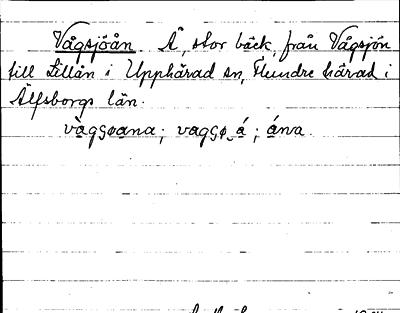 Vågsjöån. Å, stor bäck, från Vågsjön
till Lillån i Upphärad sn, Flundre härad i
Älfsborgs län.
vàgsøana; vagsø‿á; ána.